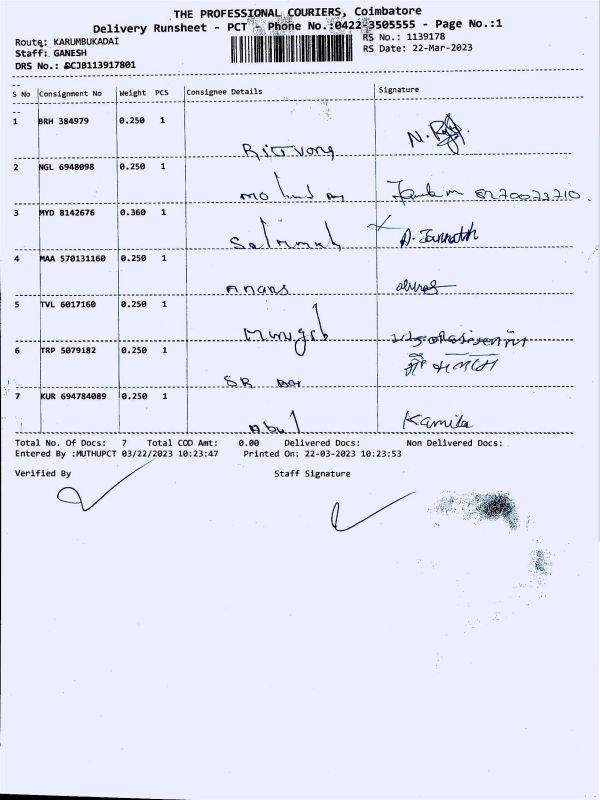 THE PROFESSIONAL COURIERS, Coimbatore
Delivery Runsheet - PCT - Phone No.:0422-3505555 - Page No.:1
Route: KARUMBUKADAI
RS No.: 1139178
Staff: GANESH
RS Date: 22-Mar-2023
DRS No.: DCJB113917801
S No Consignment No Weight PCS Consignee Details Signature
1 BRH 384979 0.250 1
2 NGL 6948098 0.250 1
3 MYD 8142676 0.360 1
A. Jannath
4 MAA 570131160 0.250 1
5 TVL 6017160 0.250 1
6 TRP 5079182 0.250 1
SR
7 KUR 694784089 0.250 1
Abul Kamila
Total No. Of Docs: 7 Total COD Amt: 0.00 Delivered Docs: Non Delivered Docs:
Entered By :MUTHUPCT 03/22/2023 10:23:47 Printed On: 22-03-2023 10:23:53
Verified By Staff Signature